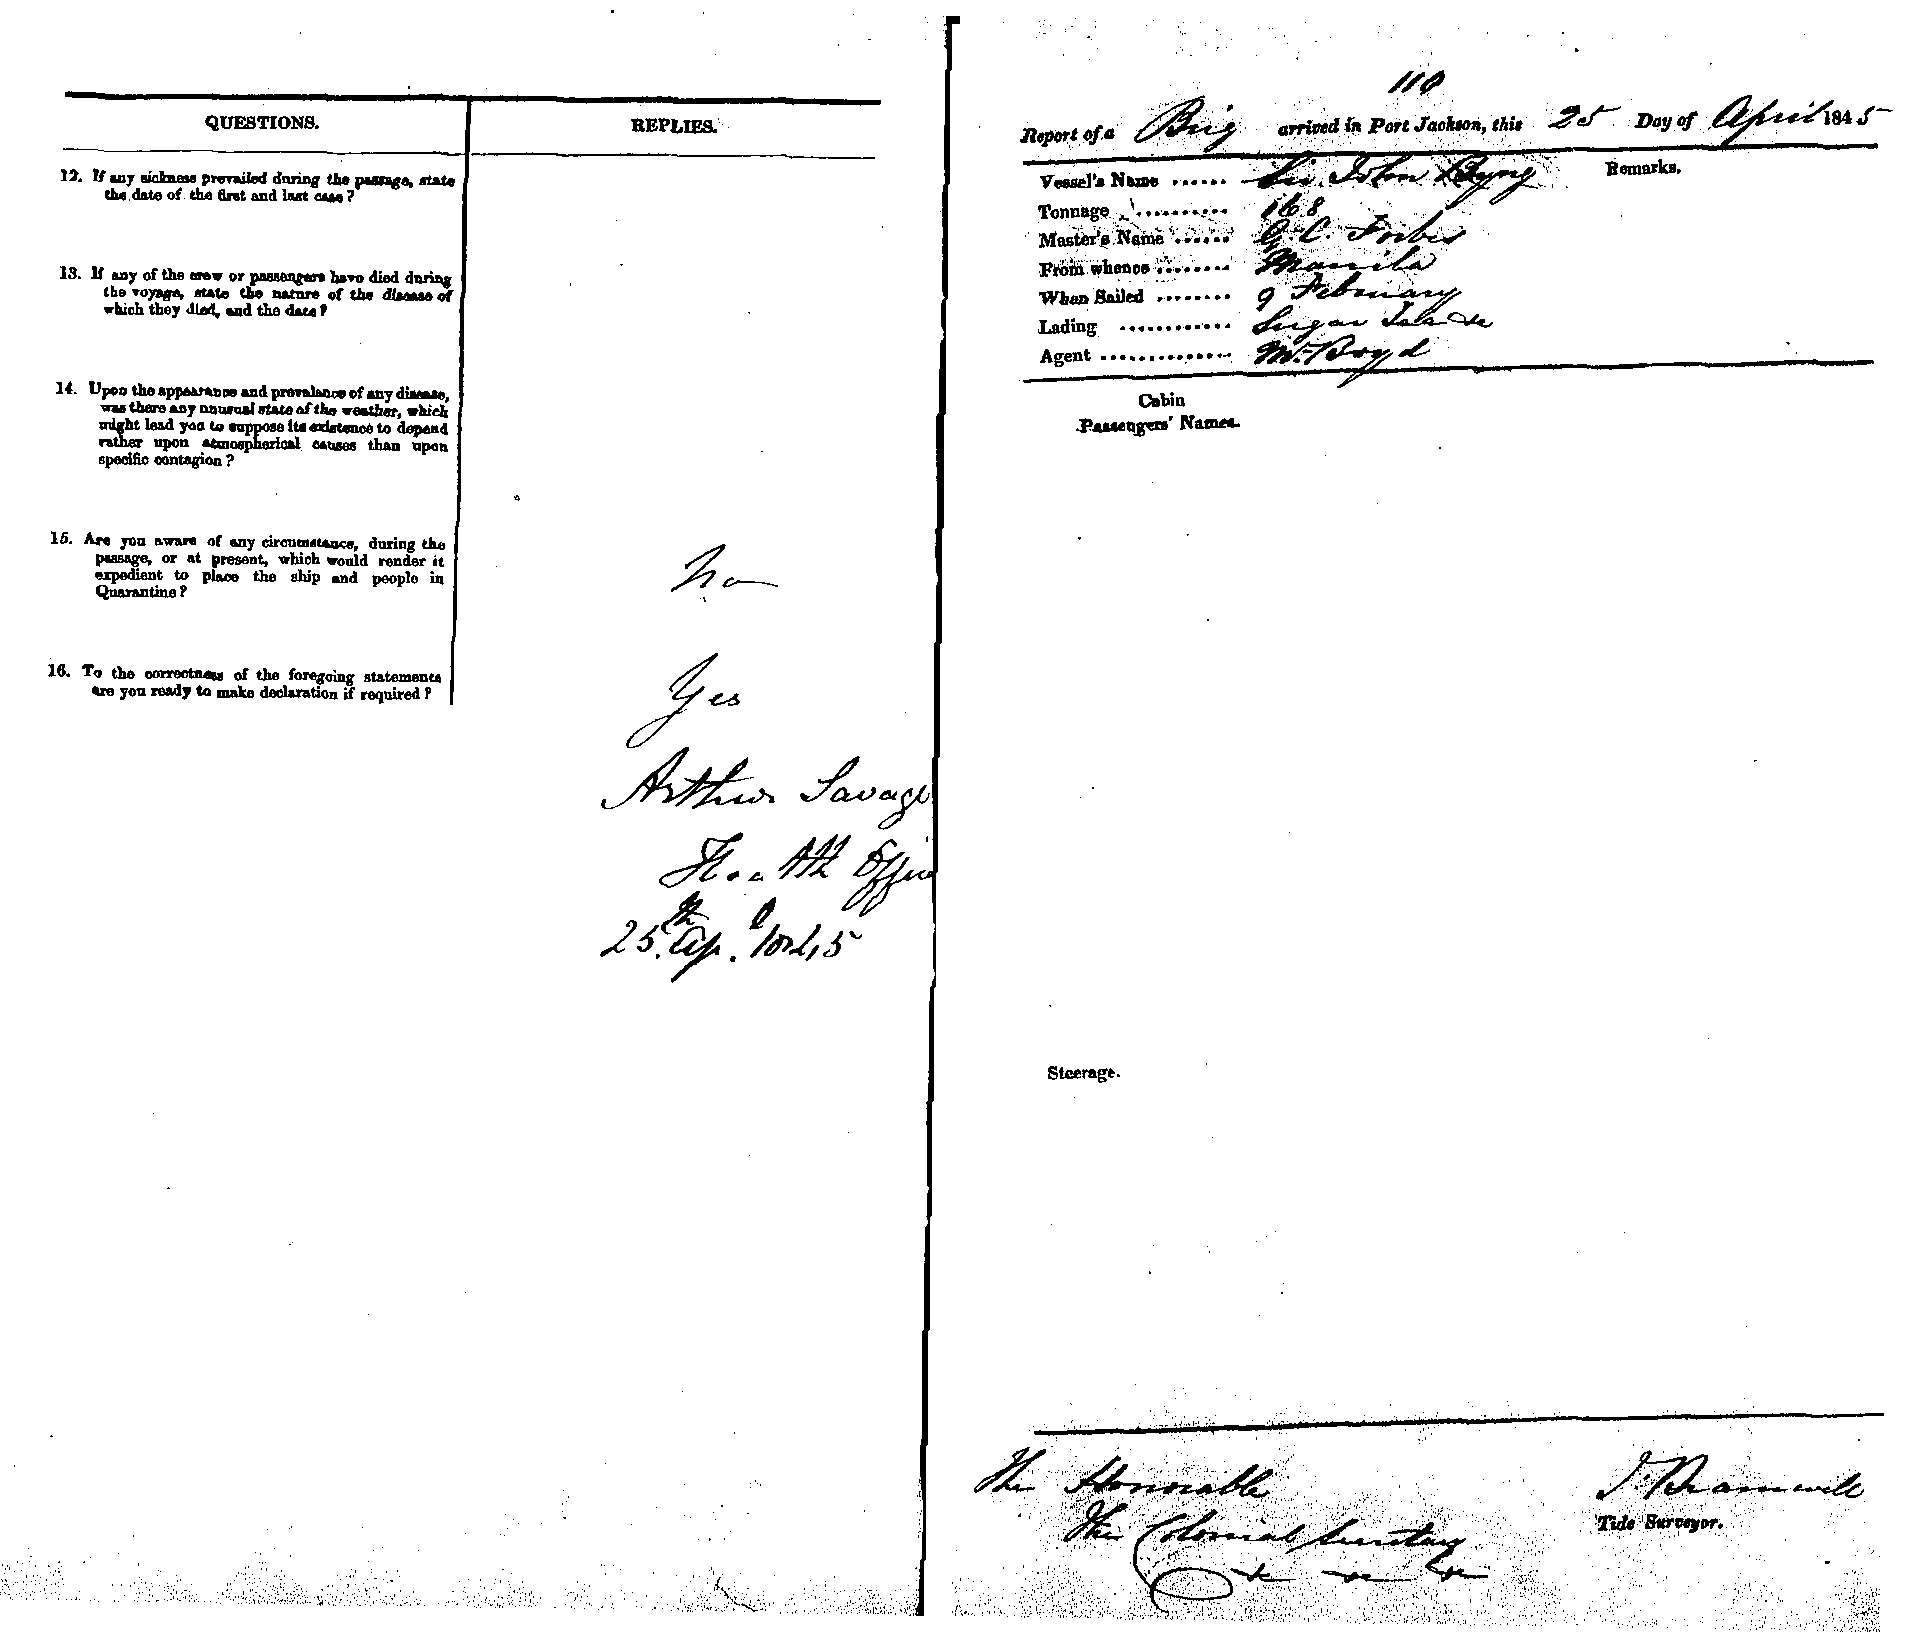 QUESTIONS.
REPLIES.
12. If any sickness prevailed during the passage, state
the date of the first and last case?
13. If any of the crew or passengers have died during
the voyage, state the nature of the disease of
which they died, and the date?
14. Upon the appearance and prevalence of any disease,
was there any unusual state of the weather, which
might lead you to suppose its existence to depend
rather upon atmospherical causes than upon
specific contagion?
15. Are you aware of any circumstance, during the
passage, or at present, which would render it
expedient to place the ship and people in
Quarantine?
No
16. To the correctness of the foregoing statements
are you ready to make declaration if required?
Yes
Arthur Savage
Health Office
25th Apl. 1845
110
Report of a Brig arrived in Port Jackson, this 25 Day of April 1845
Vessel's Name ...... Sir John Byng
Remarks.
Tonnage .......... 168
Master's Name ...... G C. Forbes
From whence ........ Manila
When Sailed ........ 9 February
Lading ............ Sugar Tea &c
Agent .............. Mr. Boyd
Cabin
Passengers' Names.
Steerage.
The Honorable
The Colonial Secretary
&c &c &c
J. Bramwell
Tide Surveyor.